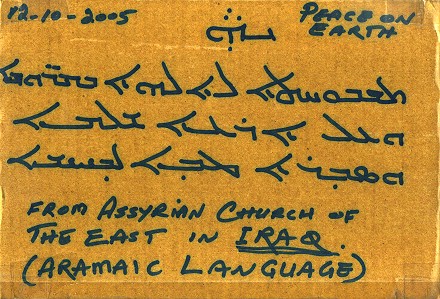 12-10-2005
PEACE ON
EARTH
ܬܫܒܘܚܬܐ ܠܐܠܗܐ
ܘܥܠ ܐܪܥܐ ܫܠܡܐ
ܘܣܒܪܐ ܛܒܐ
FROM ASSYRIAN CHURCH OF
THE EAST IN IRAQ.
(ARAMAIC LANGUAGE)